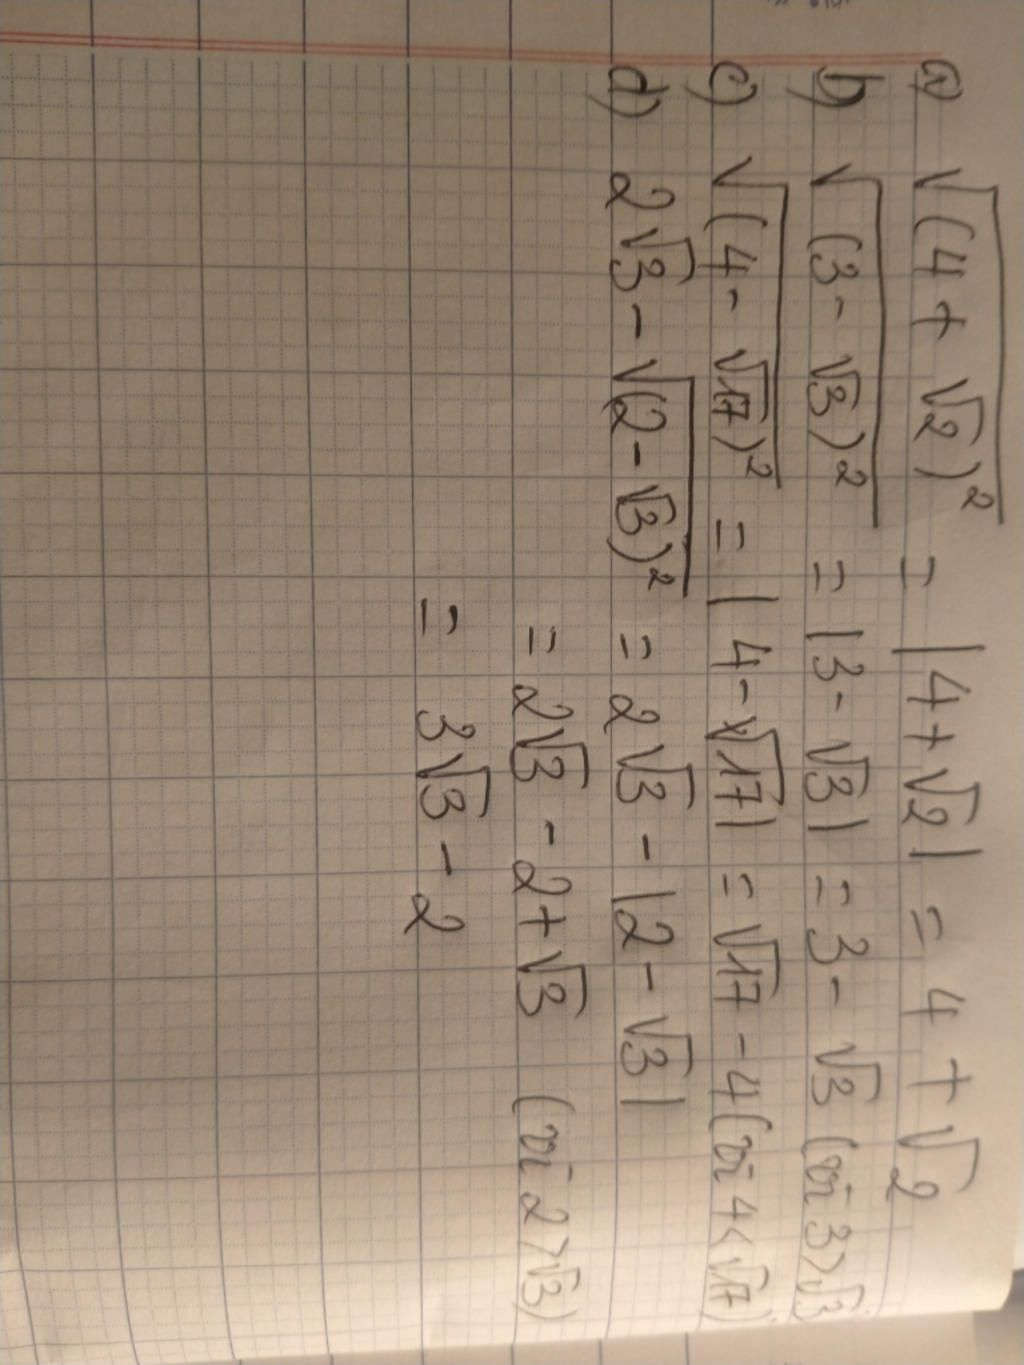 a) √(4 + √2)² = |4+√2| = 4 + √2
b) √(3 - √3)² = |3 - √3| = 3 - √3 (vì 3 > √3)
c) √(4 - √17)² = |4 - √17| = √17 - 4 (vì 4 < √17)
d) 2√3 - √(2 - √3)² = 2√3 - |2 - √3|
= 2√3 - 2 + √3 (vì 2 > √3)
= 3√3 - 2